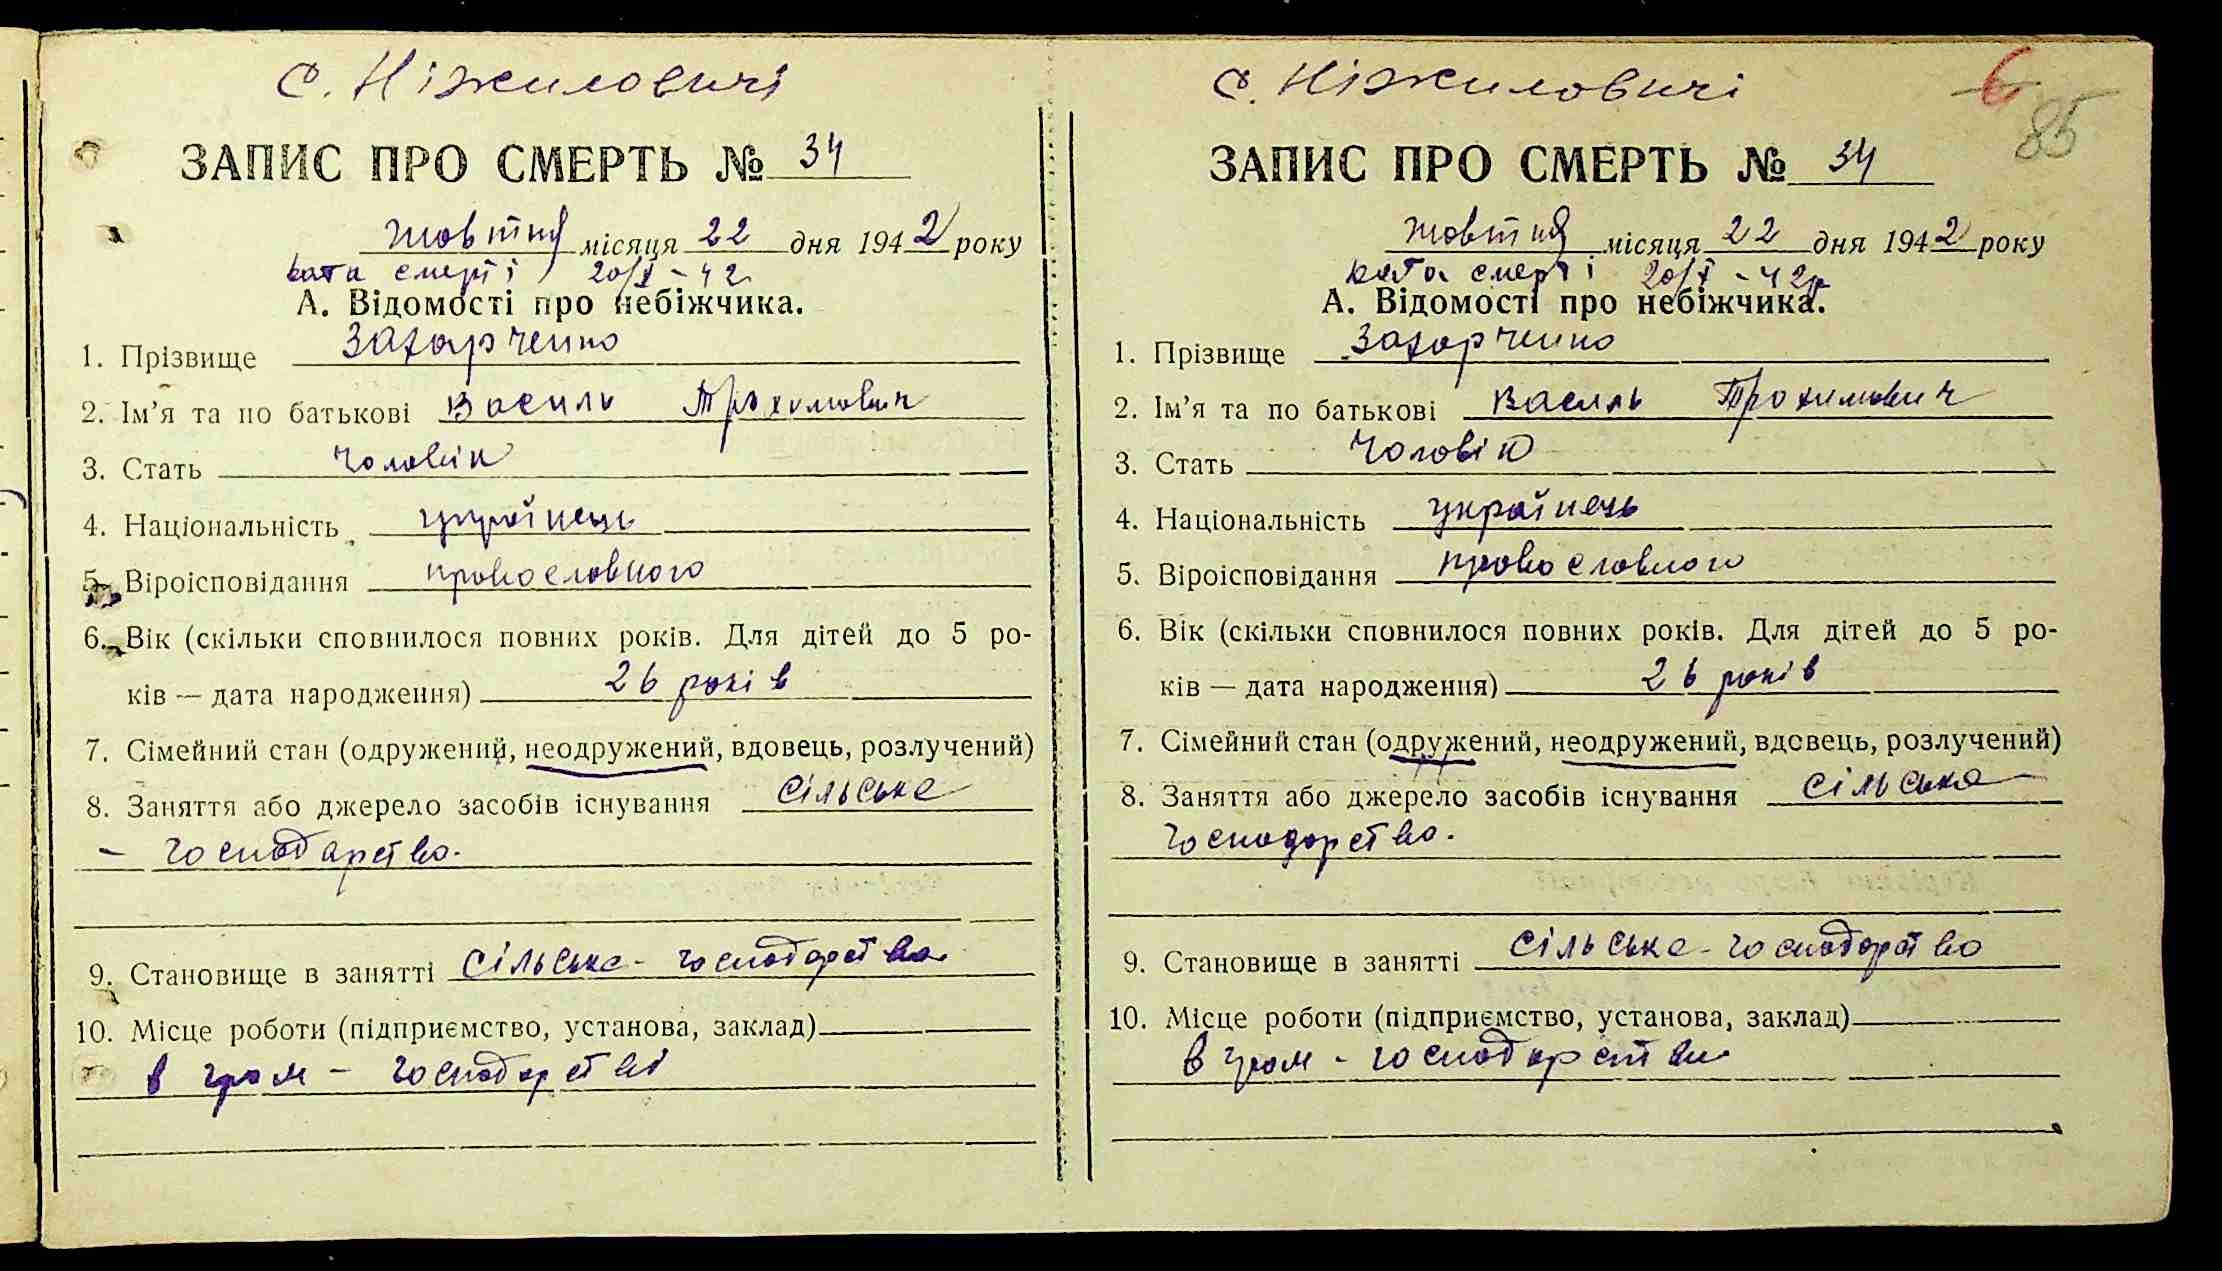 с. Ніжиловичі
ЗАПИС ПРО СМЕРТЬ № 34
жовтня місяця 22 дня 1942 року
дата смерті 20/X - 42
А. Відомості про небіжчика.
1. Прізвище Захарченко
2. Ім'я та по батькові Василь Трохимович
3. Стать чоловік
4. Національність українець
5. Віроісповідання православного
6. Вік (скільки сповнилося повних років. Для дітей до 5 ро-
ків — дата народження) 26 років
7. Сімейний стан (одружений, неодружений, вдовець, розлучений)
8. Заняття або джерело засобів існування сільське
- господарство.
9. Становище в занятті сільське - господарство
10. Місце роботи (підприємство, установа, заклад)
в гром - господарстві
с. Ніжиловичі
6
85
ЗАПИС ПРО СМЕРТЬ № 34
жовтня місяця 22 дня 1942 року
дата смерті 20/X - 42р
А. Відомості про небіжчика.
1. Прізвище Захарченко
2. Ім'я та по батькові Василь Трохимович
3. Стать чоловік
4. Національність українець
5. Віроісповідання православного
6. Вік (скільки сповнилося повних років. Для дітей до 5 ро-
ків — дата народження) 26 років
7. Сімейний стан (одружений, неодружений, вдовець, розлучений)
8. Заняття або джерело засобів існування сільське
господарство.
9. Становище в занятті сільське - господарство
10. Місце роботи (підприємство, установа, заклад)
в гром - господарстві